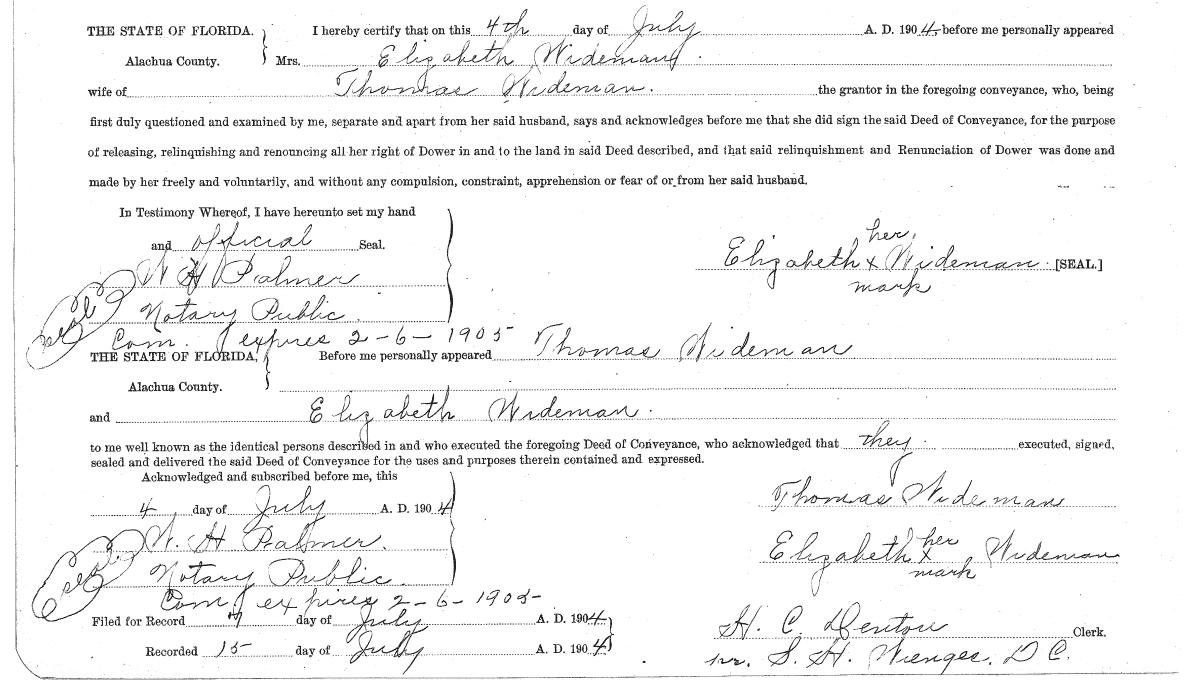 THE STATE OF FLORIDA. } I hereby certify that on this 4th day of July A. D. 1904 before me personally appeared
Alachua County. Mrs. Elizabeth Wideman
wife of Thomas Wideman. the grantor in the foregoing conveyance, who, being
first duly questioned and examined by me, separate and apart from her said husband, says and acknowledges before me that she did sign the said Deed of Conveyance, for the purpose
of releasing, relinquishing and renouncing all her right of Dower in and to the land in said Deed described, and that said relinquishment and Renunciation of Dower was done and
made by her freely and voluntarily, and without any compulsion, constraint, apprehension or fear of or from her said husband.
In Testimony Whereof, I have hereunto set my hand
and official Seal.
her
Elizabeth x Wideman. [SEAL.]
mark
W H Palmer
Seal Notary Public.
Com. expires 2-6-1905
THE STATE OF FLORIDA, } Before me personally appeared Thomas Wideman
Alachua County.
and Elizabeth Wideman.
to me well known as the identical persons described in and who executed the foregoing Deed of Conveyance, who acknowledged that they executed, signed,
sealed and delivered the said Deed of Conveyance for the uses and purposes therein contained and expressed.
Acknowledged and subscribed before me, this
4 day of July A. D. 1904
Thomas Wideman
W. H Palmer.
her
Elizabeth x Wideman
mark
Seal Notary Public.
Com expires 2-6-1905
Filed for Record 7 day of July A. D. 1904
H. C. Denton Clerk.
Recorded 15 day of July A. D. 1904
S. H. Wienges. D C.